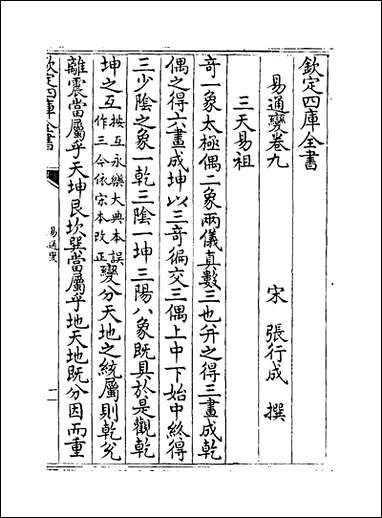 欽定四庫全書
易通變卷九
宋 張行成 撰
三天易祖
奇一象太極偶二象兩儀真數三也幷之得三畫成乾
偶之得六畫成坤以三奇徧交三偶上中下始中終得
三少陰之象一乾三陰一坤三陽八象既具於是觀乾
坤之互按互永樂大典本誤作三今依宋本改正變分天地之統屬則乾兌
離震當屬乎天坤艮坎巽當屬乎地天地既分因而重
欽定四庫全書
易通變
一